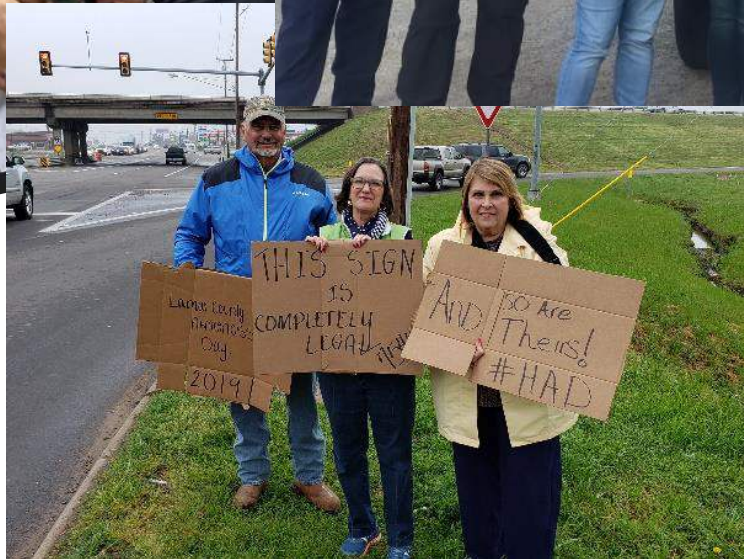 Lamar County
Awareness
Day
2019!
THIS SIGN
IS
COMPLETELY
LEGAL
And
SO Are
Theirs!
#HAD